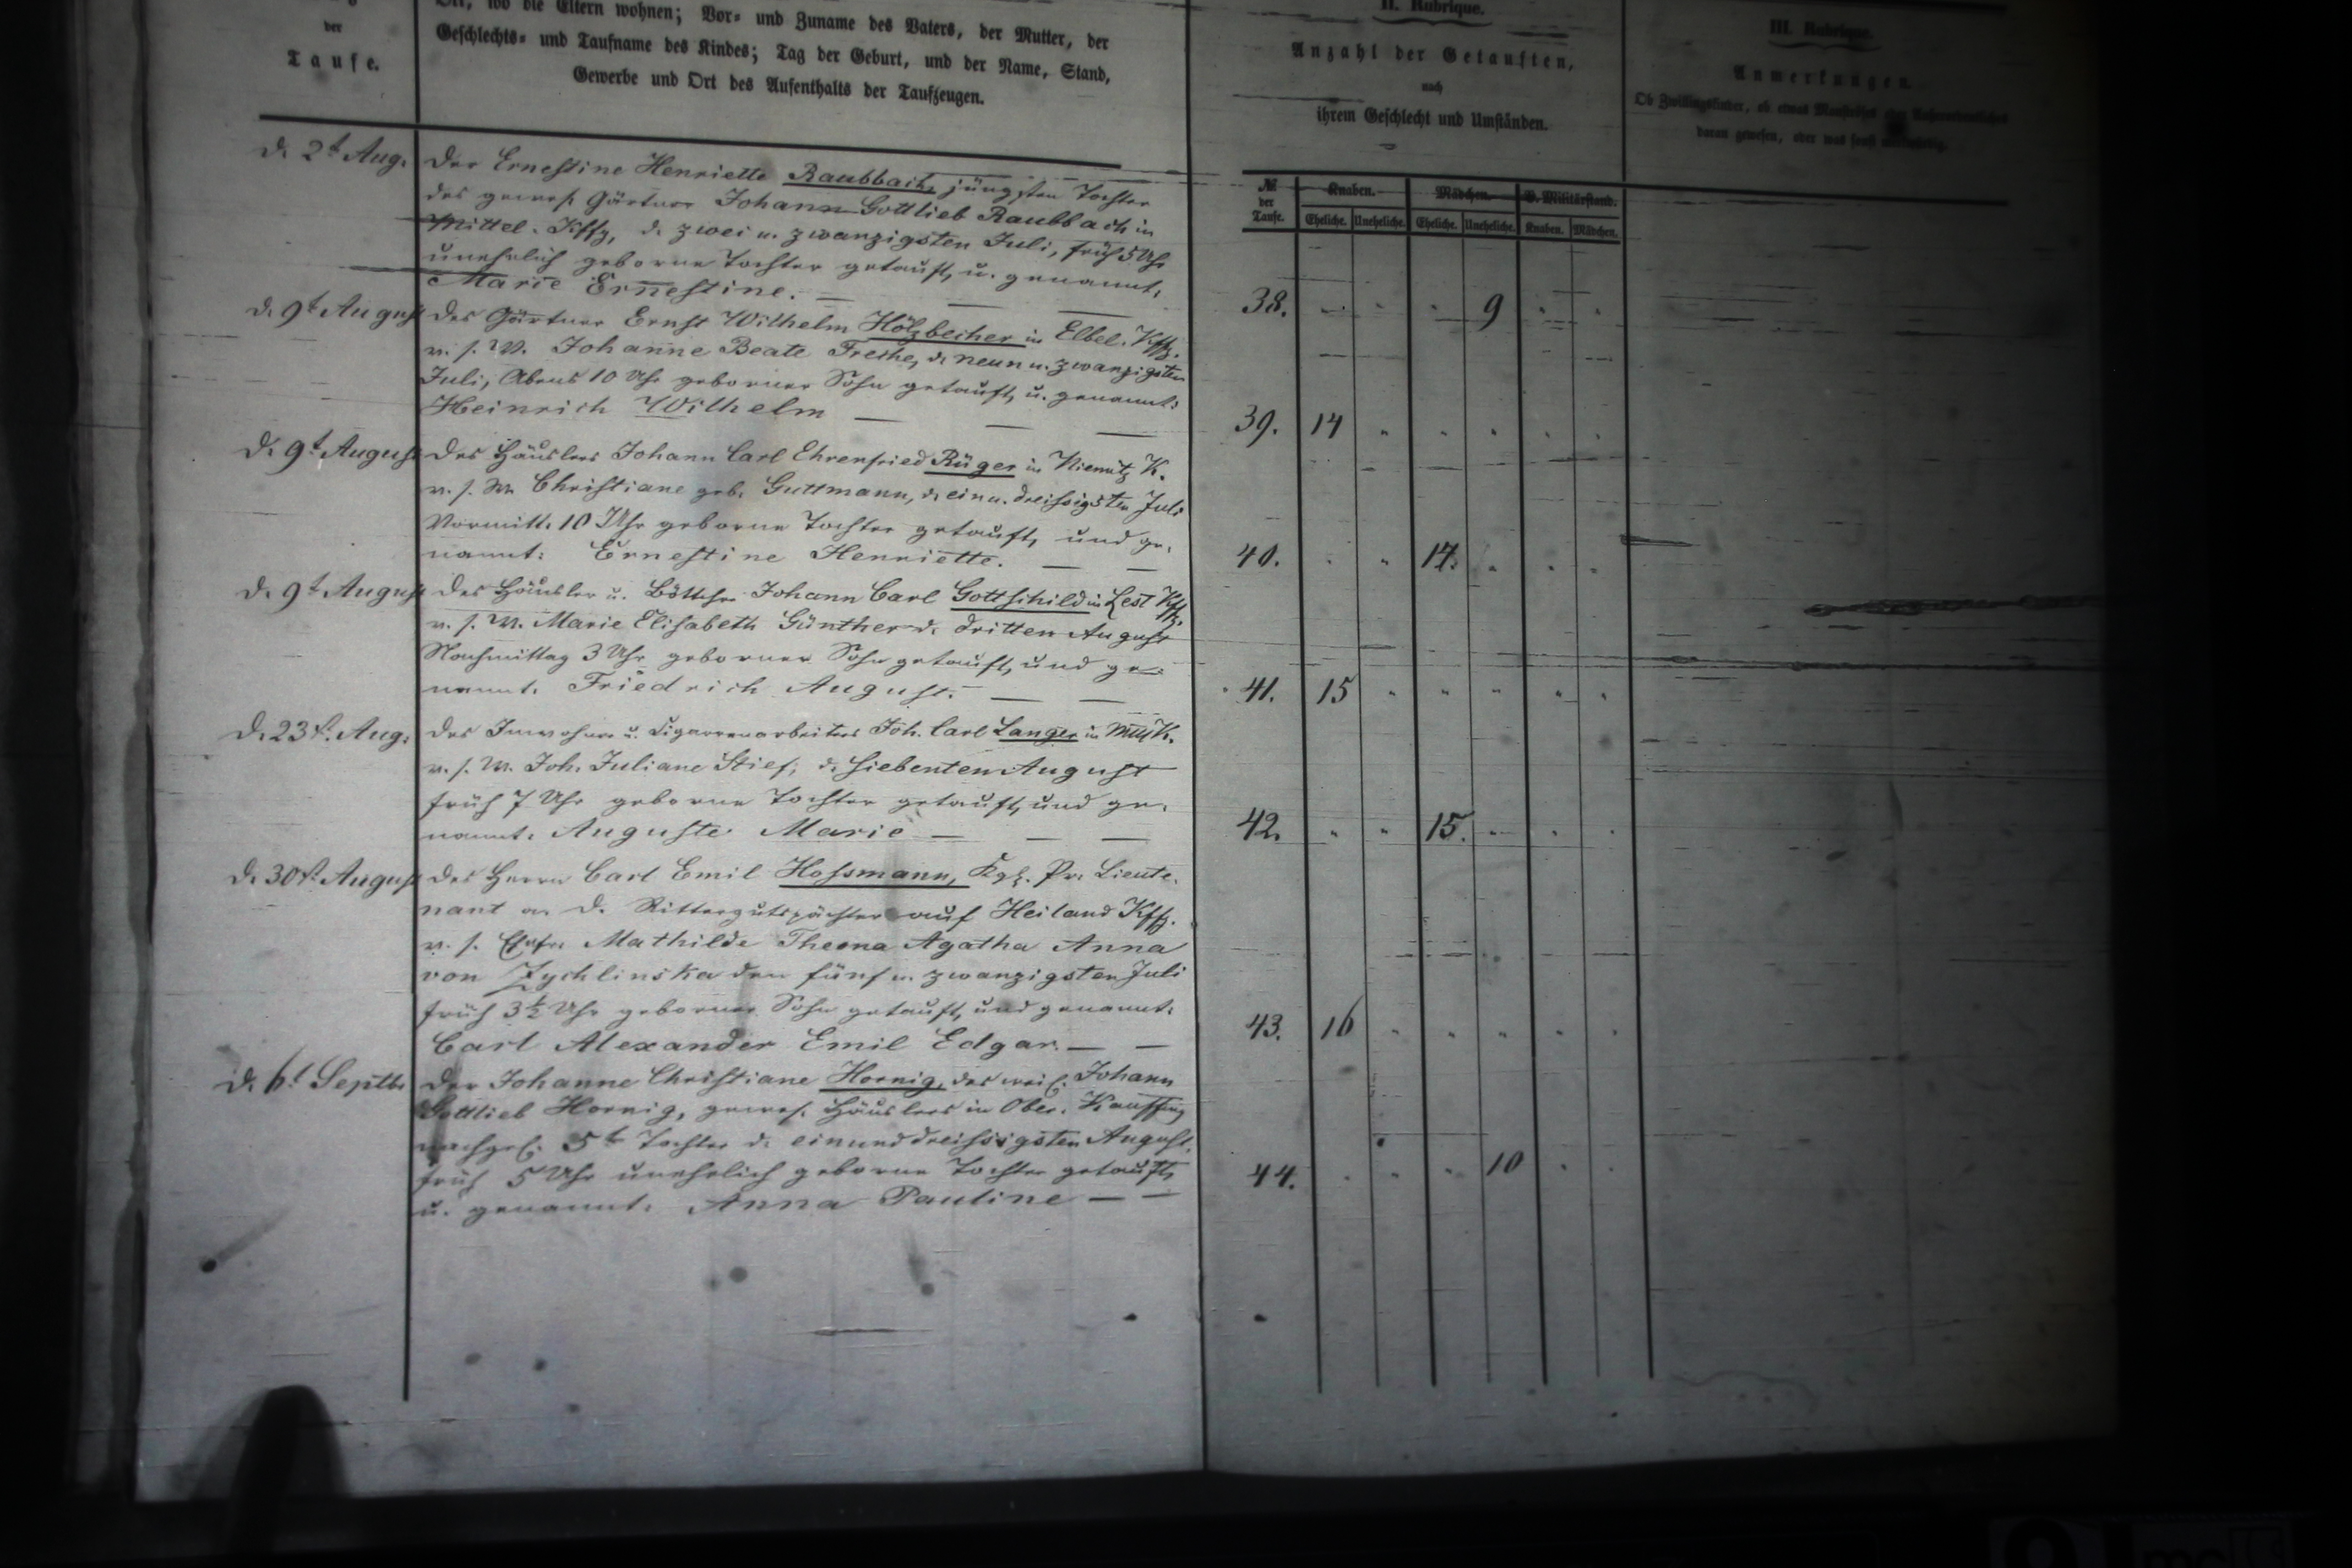 der
Taufe.
Ort, wo die Eltern wohnen; Vor- und Zuname des Vaters, der Mutter, der
Geschlechts- und Taufname des Kindes; Tag der Geburt, und der Name, Stand,
Gewerbe und Ort des Aufenthalts der Taufzeugen.
II. Rubrique.
Anzahl der Getauften,
nach
ihrem Geschlecht und Umständen.
III. Rubrique.
Anmerkungen.
Ob Zwillingskinder, ob etwas Monströses oder Außerordentliches
daran gewesen, oder was sonst merkwürdig.
№ der Taufe.
Knaben. Mädchen. V. Militärstand.
Eheliche. Uneheliche. Eheliche. Uneheliche. Knaben. Mädchen.
d. 2t Aug.
Der Ernestine Henriette Raubbach, jüngsten Tochter
des gewes. Gärtner Johann Gottlieb Raubbach in
Mittel-Kffg, d. zwei u. zwanzigsten Juli, früh 5 Uhr
unehelich geborne Tochter getauft, u. genannt:
Marie Ernestine.
38. 9
d. 9t August
Des Gärtner Ernst Wilhelm Hölzbecher in Elbel. Kffg.
v. s. W. Johanne Beate Freche, d. neun u. zwanzigsten
Juli, Abends 10 Uhr geborner Sohn getauft, u. genannt:
Heinrich Wilhelm
39. 14
d. 9t August
Des Häuslers Johann Carl Ehrenfried Rüger in Niemitz K.
v. s. W. Christiane geb. Guttmann, d. ein u. dreissigsten Juli
Vormitt. 10 Uhr geborne Tochter getauft, und ge-
nannt: Ernestine Henriette.
40. 14.
d. 9t August
Des Häusler u. Böttcher Johann Carl Gottschild in Lest Kffg.
v. s. W. Marie Elisabeth Günther d. dritten August
Nachmittag 3 Uhr geborner Sohn getauft, und ge-
nannt: Friedrich August.
41. 15
d. 23t. Aug.
Des Inwohner u. Cigarrenarbeiters Joh. Carl Langer in K.
v. s. W. Joh. Juliane Stief, d. siebenten August
früh 7 Uhr geborne Tochter getauft, und ge-
nannt: Auguste Marie
42. 15.
d. 30t. August
Des Herrn Carl Emil Hossmann, Kgl. Pr. Lieute-
nant a. D. Rittergutspächter auf Heiland Kffg.
v. s. Ehefr. Mathilde Agatha Anna
von Zychlinska den fünf u. zwanzigsten Juli
früh 3½ Uhr geborner Sohn getauft, und genannt:
Carl Alexander Emil Edgar.
43. 16
d. 6t Septbr
Der Johanne Christiane Hornig, des weil. Johann
Gottlieb Hornig, gewes. Häuslers in Ober-Kauffung
nachgel. 5t Tochter d. einunddreissigsten August,
früh 5 Uhr unehelich geborne Tochter getauft,
u. genannt: Anna Pauline
44. 10